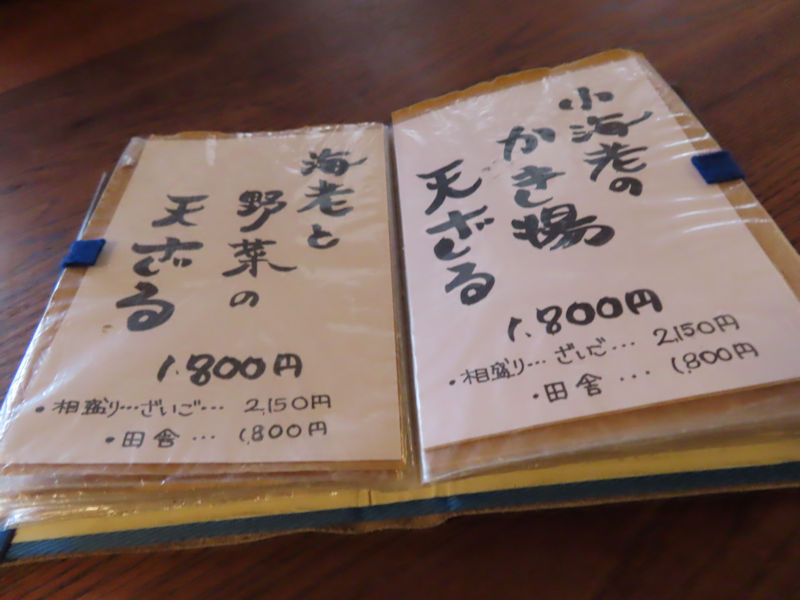 小海老の
かき揚
天ざる
1.800円
・相盛り…ざいご… 2,150円
・田舎… 1,800円
海老と
野菜の
天ざる
1.800円
・相盛り…ざいご… 2,150円
・田舎… 1,800円